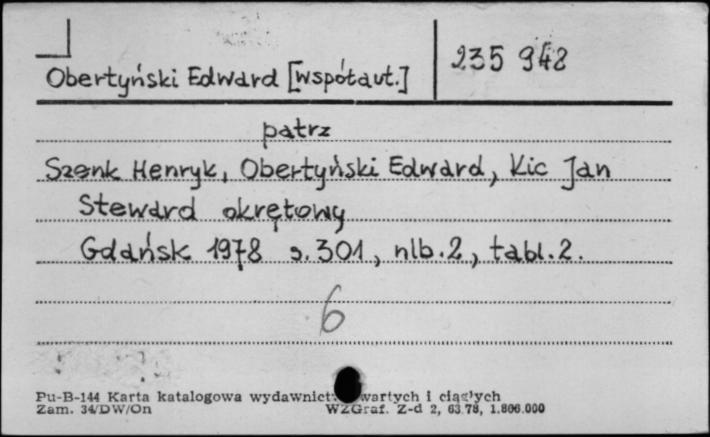 Obertyński Edward [współaut.]
235 948
patrz
Szenk Henryk, Obertyński Edward, Kic Jan
Steward okrętowy
Gdańsk 1978 s. 301, nlb. 2, tabl. 2.
6
Pu-B-144 Karta katalogowa wydawnictw zwartych i ciągłych
Zam. 34/DW/On WZGraf. Z-d 2, 63.78, 1.806.000